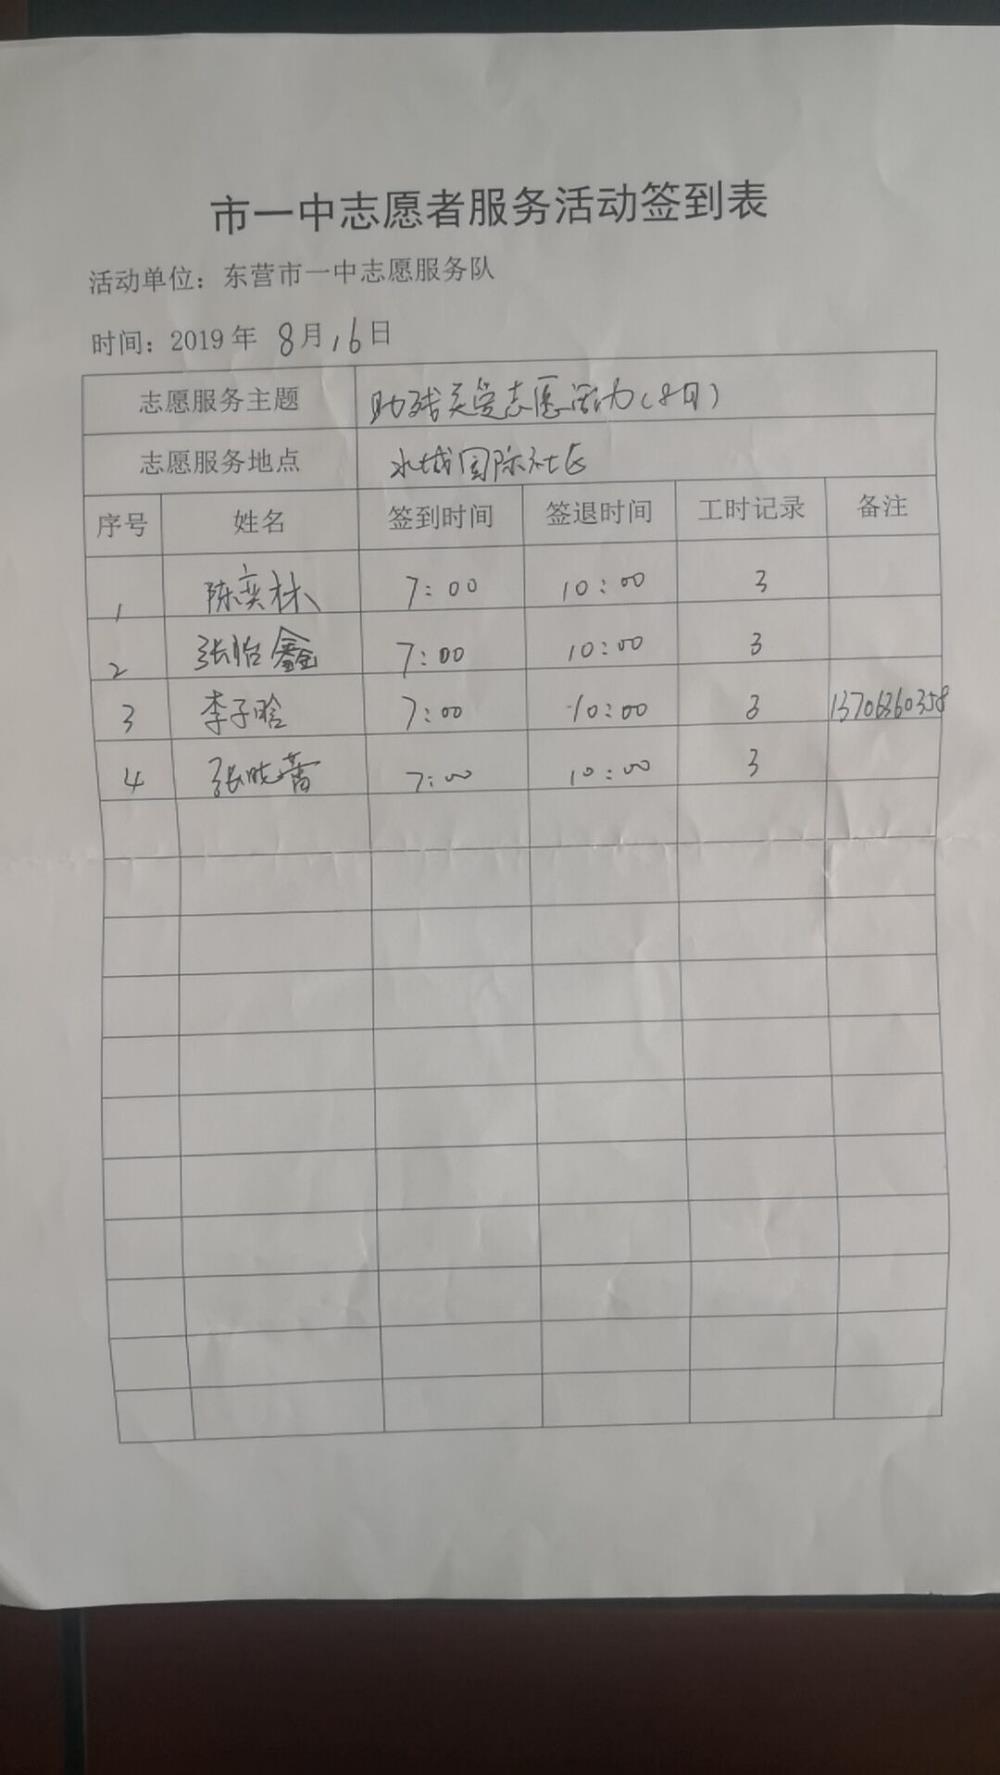 市一中志愿者服务活动签到表
活动单位：东营市一中志愿服务队
时间：2019年 8月16日
志愿服务主题 助残关爱志愿活动(8月)
志愿服务地点 水城国际社区
序号 姓名 签到时间 签退时间 工时记录 备注
1 陈奕林 7:00 10:00 3
2 张怡鑫 7:00 10:00 3
3 李子晗 7:00 10:00 3 13706360358
4 张晓蕾 7:00 10:00 3